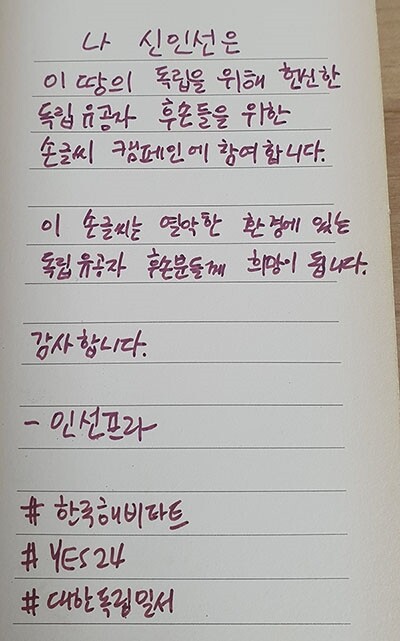 나 신인선은
이 땅의 독립을 위해 헌신한
독립유공자 후손들을 위한
손글씨 캠페인에 참여합니다.
이 손글씨는 열악한 환경에 있는
독립유공자 후손분들께 희망이 됩니다.
감사합니다.
- 인선프라
# 한국해비타트
# YES24
# 대한독립밀서